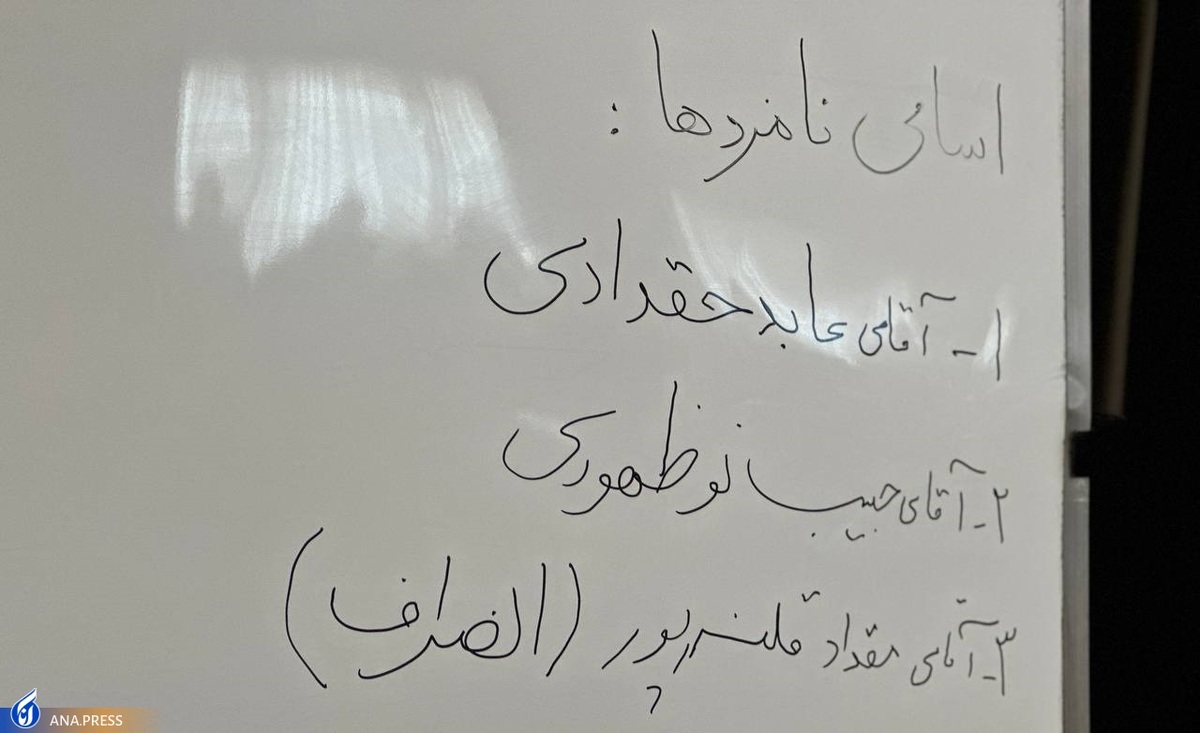 اسامی نامزدها :
۱- آقای عابد حقدادی
۲- آقای حبیب نوظهوری
۳- آقای مقداد قلندرپور (انصراف)
ANA.PRESS